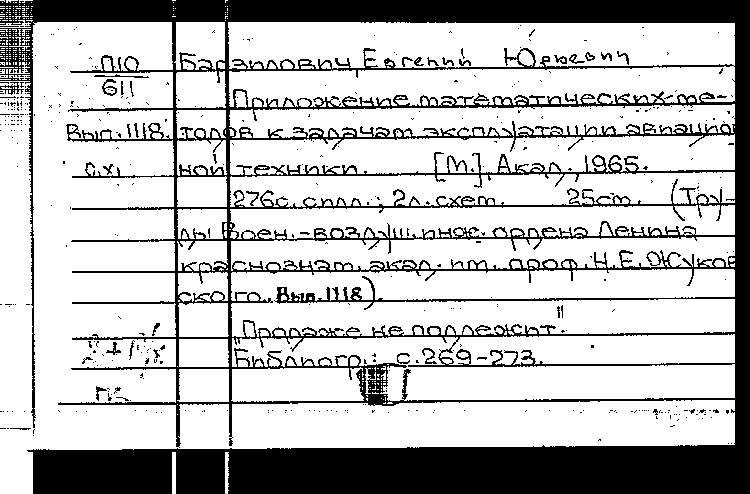 П10 Барзилович, Евгений Юрьевич
611
Приложение математических ме-
Вып.1118. тодов к задачам эксплуатации авиацион
ной техники. [М.], Акад., 1965.
276с. с илл.; 2л. схем. 25см. (Тру-
ды Воен.-воздуш. инж. ордена Ленина
краснознам. акад. им. проф. Н.Е.Жуков
ского. Вып.1118).
"Продаже не подлежит."
Библиогр.: с.269-273.
ПБ